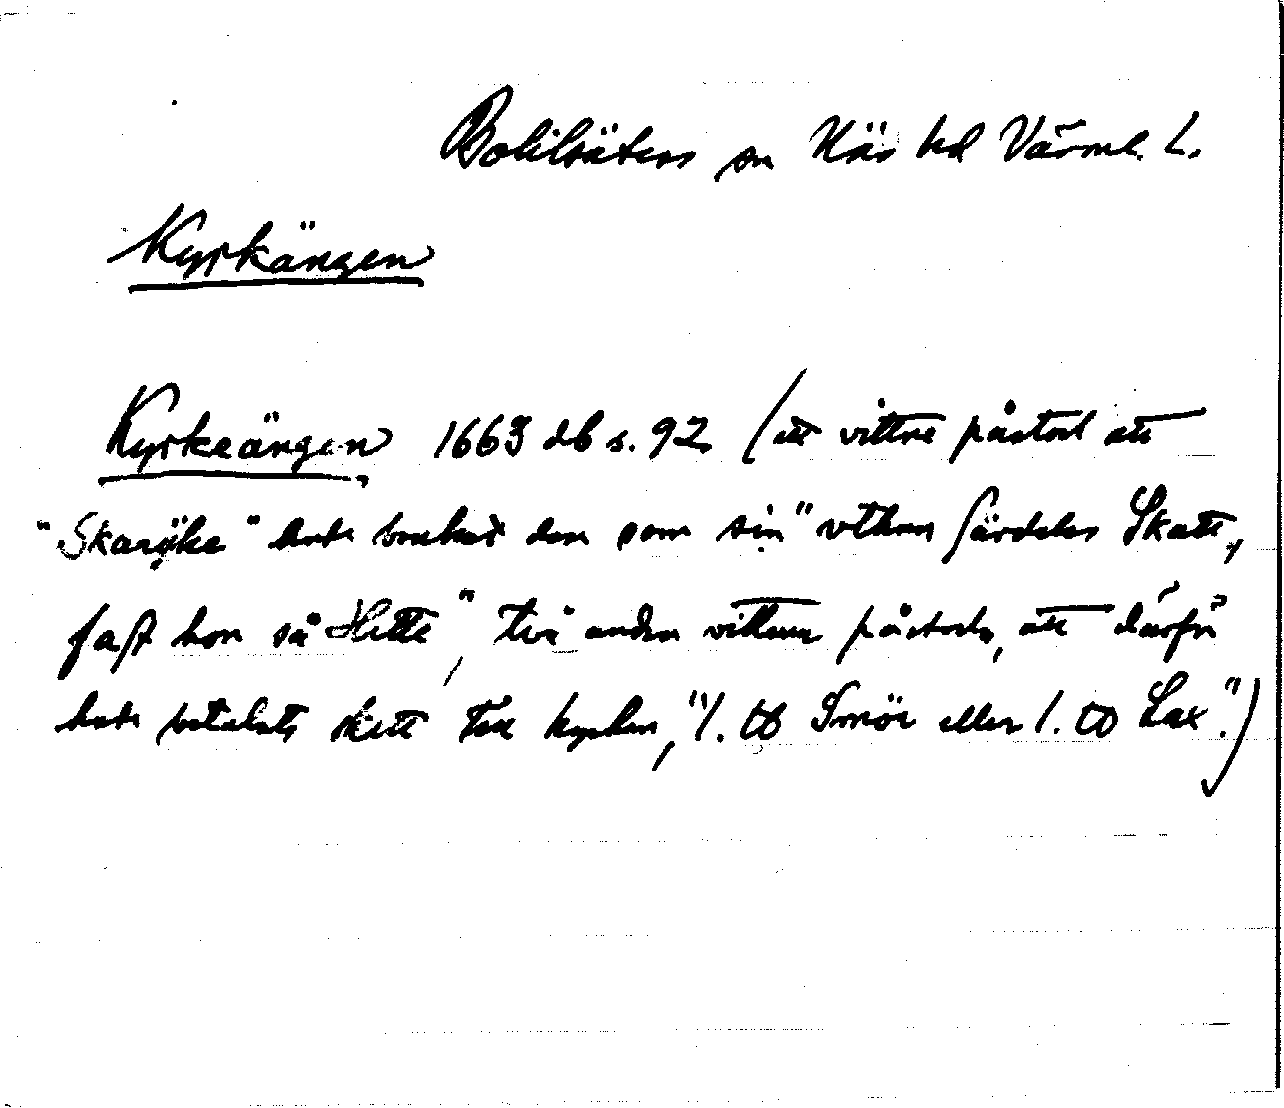 Bolilsäters sn Näs hd Värml. L.
Kyrkängen
Kyrkeängen 1663 db s. 92 (ett vittne påstod att
"Skaröke" hade brukat den som sin "uthan särdeles Skatt,
fast hon så Hette", två andra vittnen påstodo, att därför
hade betalats skatt till kyrkan, "1. ℔ Smör eller 1. ℔ Lax".)